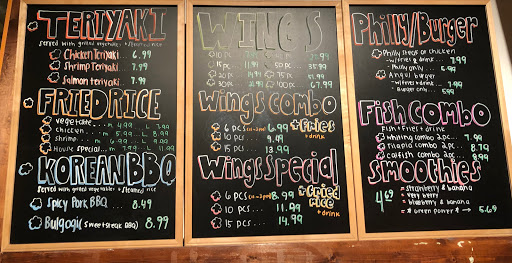 TERIYAKI
served with grilled vegetables + steamed rice
Chicken Teriyaki .. 6.99
Shrimp Teriyaki .. 7.99
Salmon teriyaki 7.99
FRIED RICE
vegetable . . . m 4.99 .. L 7.99
chicken . . . m 5.99 .. L 8.99
shrimp . . . m 6.99 .. L 9.99
House special . . . 7.99 L
KOREAN BBQ
served with grilled vegetables + steamed rice
Spicy Pork BBQ ... 8.49
Bulgogi (sweet steak BBQ) 8.99
WINGS
10 pc
15 pc
20 pc
30 pc
Wings COMBO
6 pcs 6.99 + fries
10 pcs 9.99 + drink
15 pcs 13.99
Wings Special
6 pcs 8.99 + fried rice
10 pcs .... 11.99 + drink
15 pcs .... 14.99
Philly/Burger
Philly steak or chicken
w/fries + drink .... 7.99
Philly only .... 5.99
Angus burger
w/fries + drink ... 7.99
Burger only ... 5.99
Fish COMBO
Fish + fries + drink
whiting combo 2 pc .. 7.99
Tilapia combo 2 pc .... 8.99
catfish combo 2 pc .. 8.99
SMOOTHIES
4.69
strawberry & banana
very berry
blueberry & banana
* green power * → 5.69